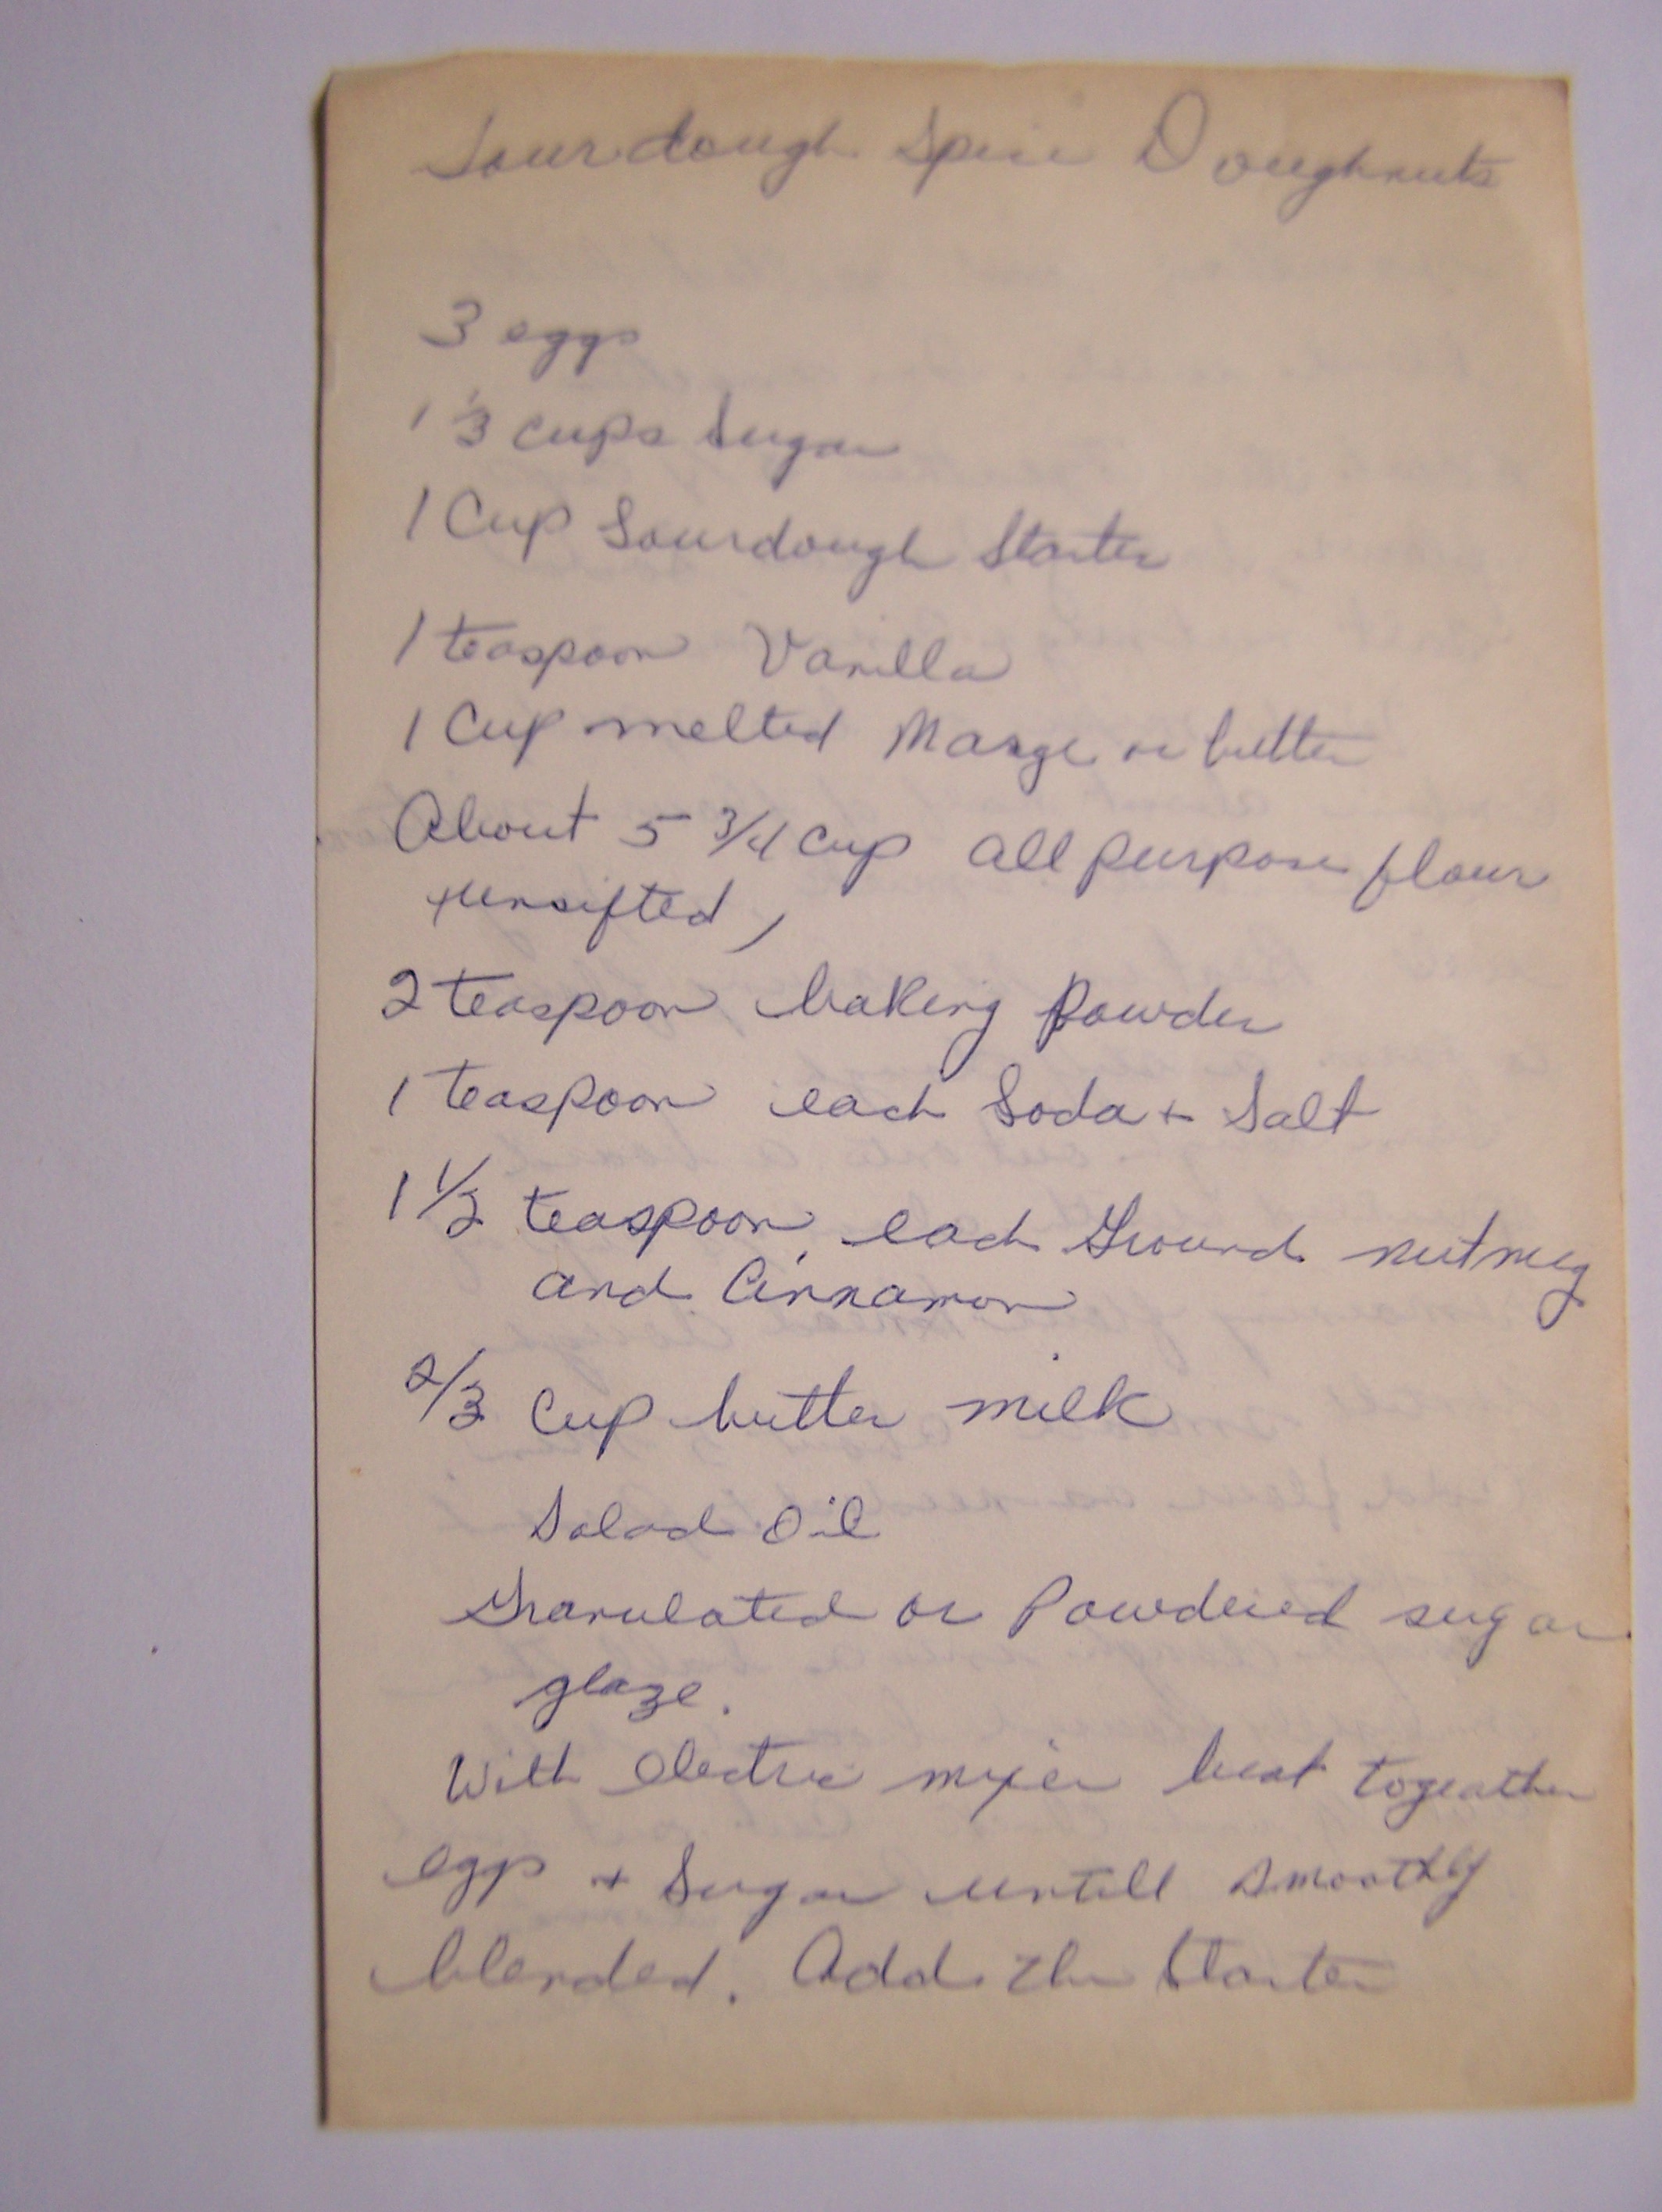 Sourdough Spice Doughnuts
3 eggs
1 1/3 cups Sugar
1 Cup Sourdough Starter
1 teaspoon Vanilla
1 Cup melted Marge or butter
About 5 3/4 cup all purpose flour
unsifted,
2 teaspoon baking Powder
1 teaspoon each Soda + Salt
1 1/2 teaspoon each Ground nutmeg
and Cinnamon
2/3 Cup butter milk
Salad Oil
Granulated or Powdered sugar
glaze.
With electric mixer beat togeather
eggs + Sugar untill smoothly
blended. Add the Starter